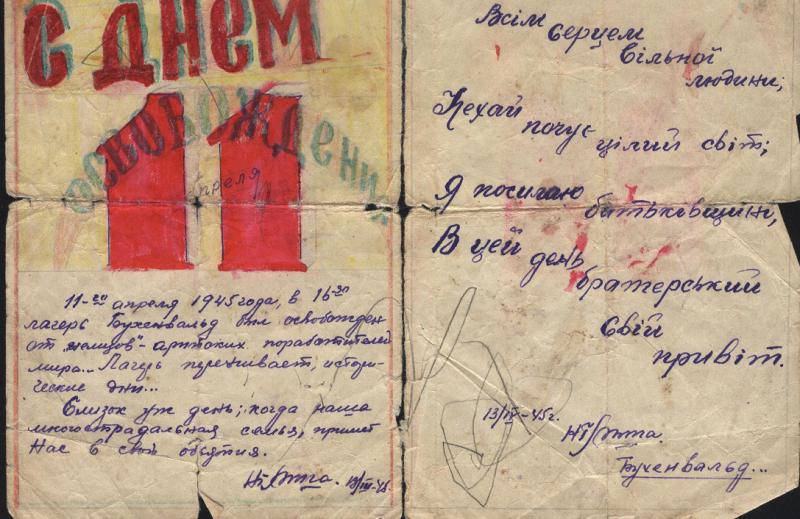 С ДНЕМ
ОСВОБОЖДЕНИЯ
11
апреля
11-го апреля 1945 года, в 16-30
лагерь Бухенвальд был освобожден
от
мира... Лагерь переживает, истори-
ческие дни...
Близок уж день, когда наша
многострадальная семья, примет
Нас в свои объятия.
13/IV-45.
Всім
серцем
вільної
людини;
Нехай
почує
цілий світ;
Я посилаю
батьківщині,
В цей
день
братерський
свій
привіт.
13/IV-45г.
Бухенвальд...